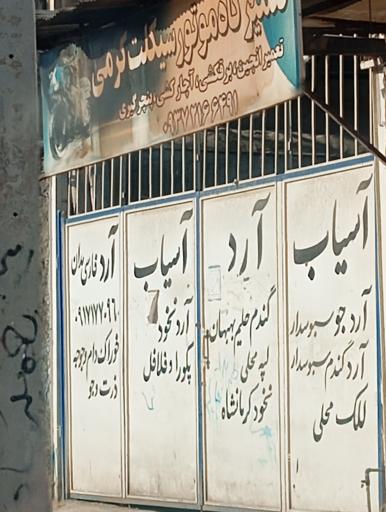 تعمیرگاه موتور سیکلت کرمی
تعمیر انجین، برقکشی، آچار کشی، پنچرگیری
آسیاب
آرد جو سبوسدار
آرد گندم سبوسدار
للک محلی
آرد
گندم حلیم بهبهان
لپه محلی
نخود کرمانشاه
آسیاب
آرد نخود
پکورا و فلافل
آرد فارسی مدل
خوراک دام و جوجه
ذرت و جو